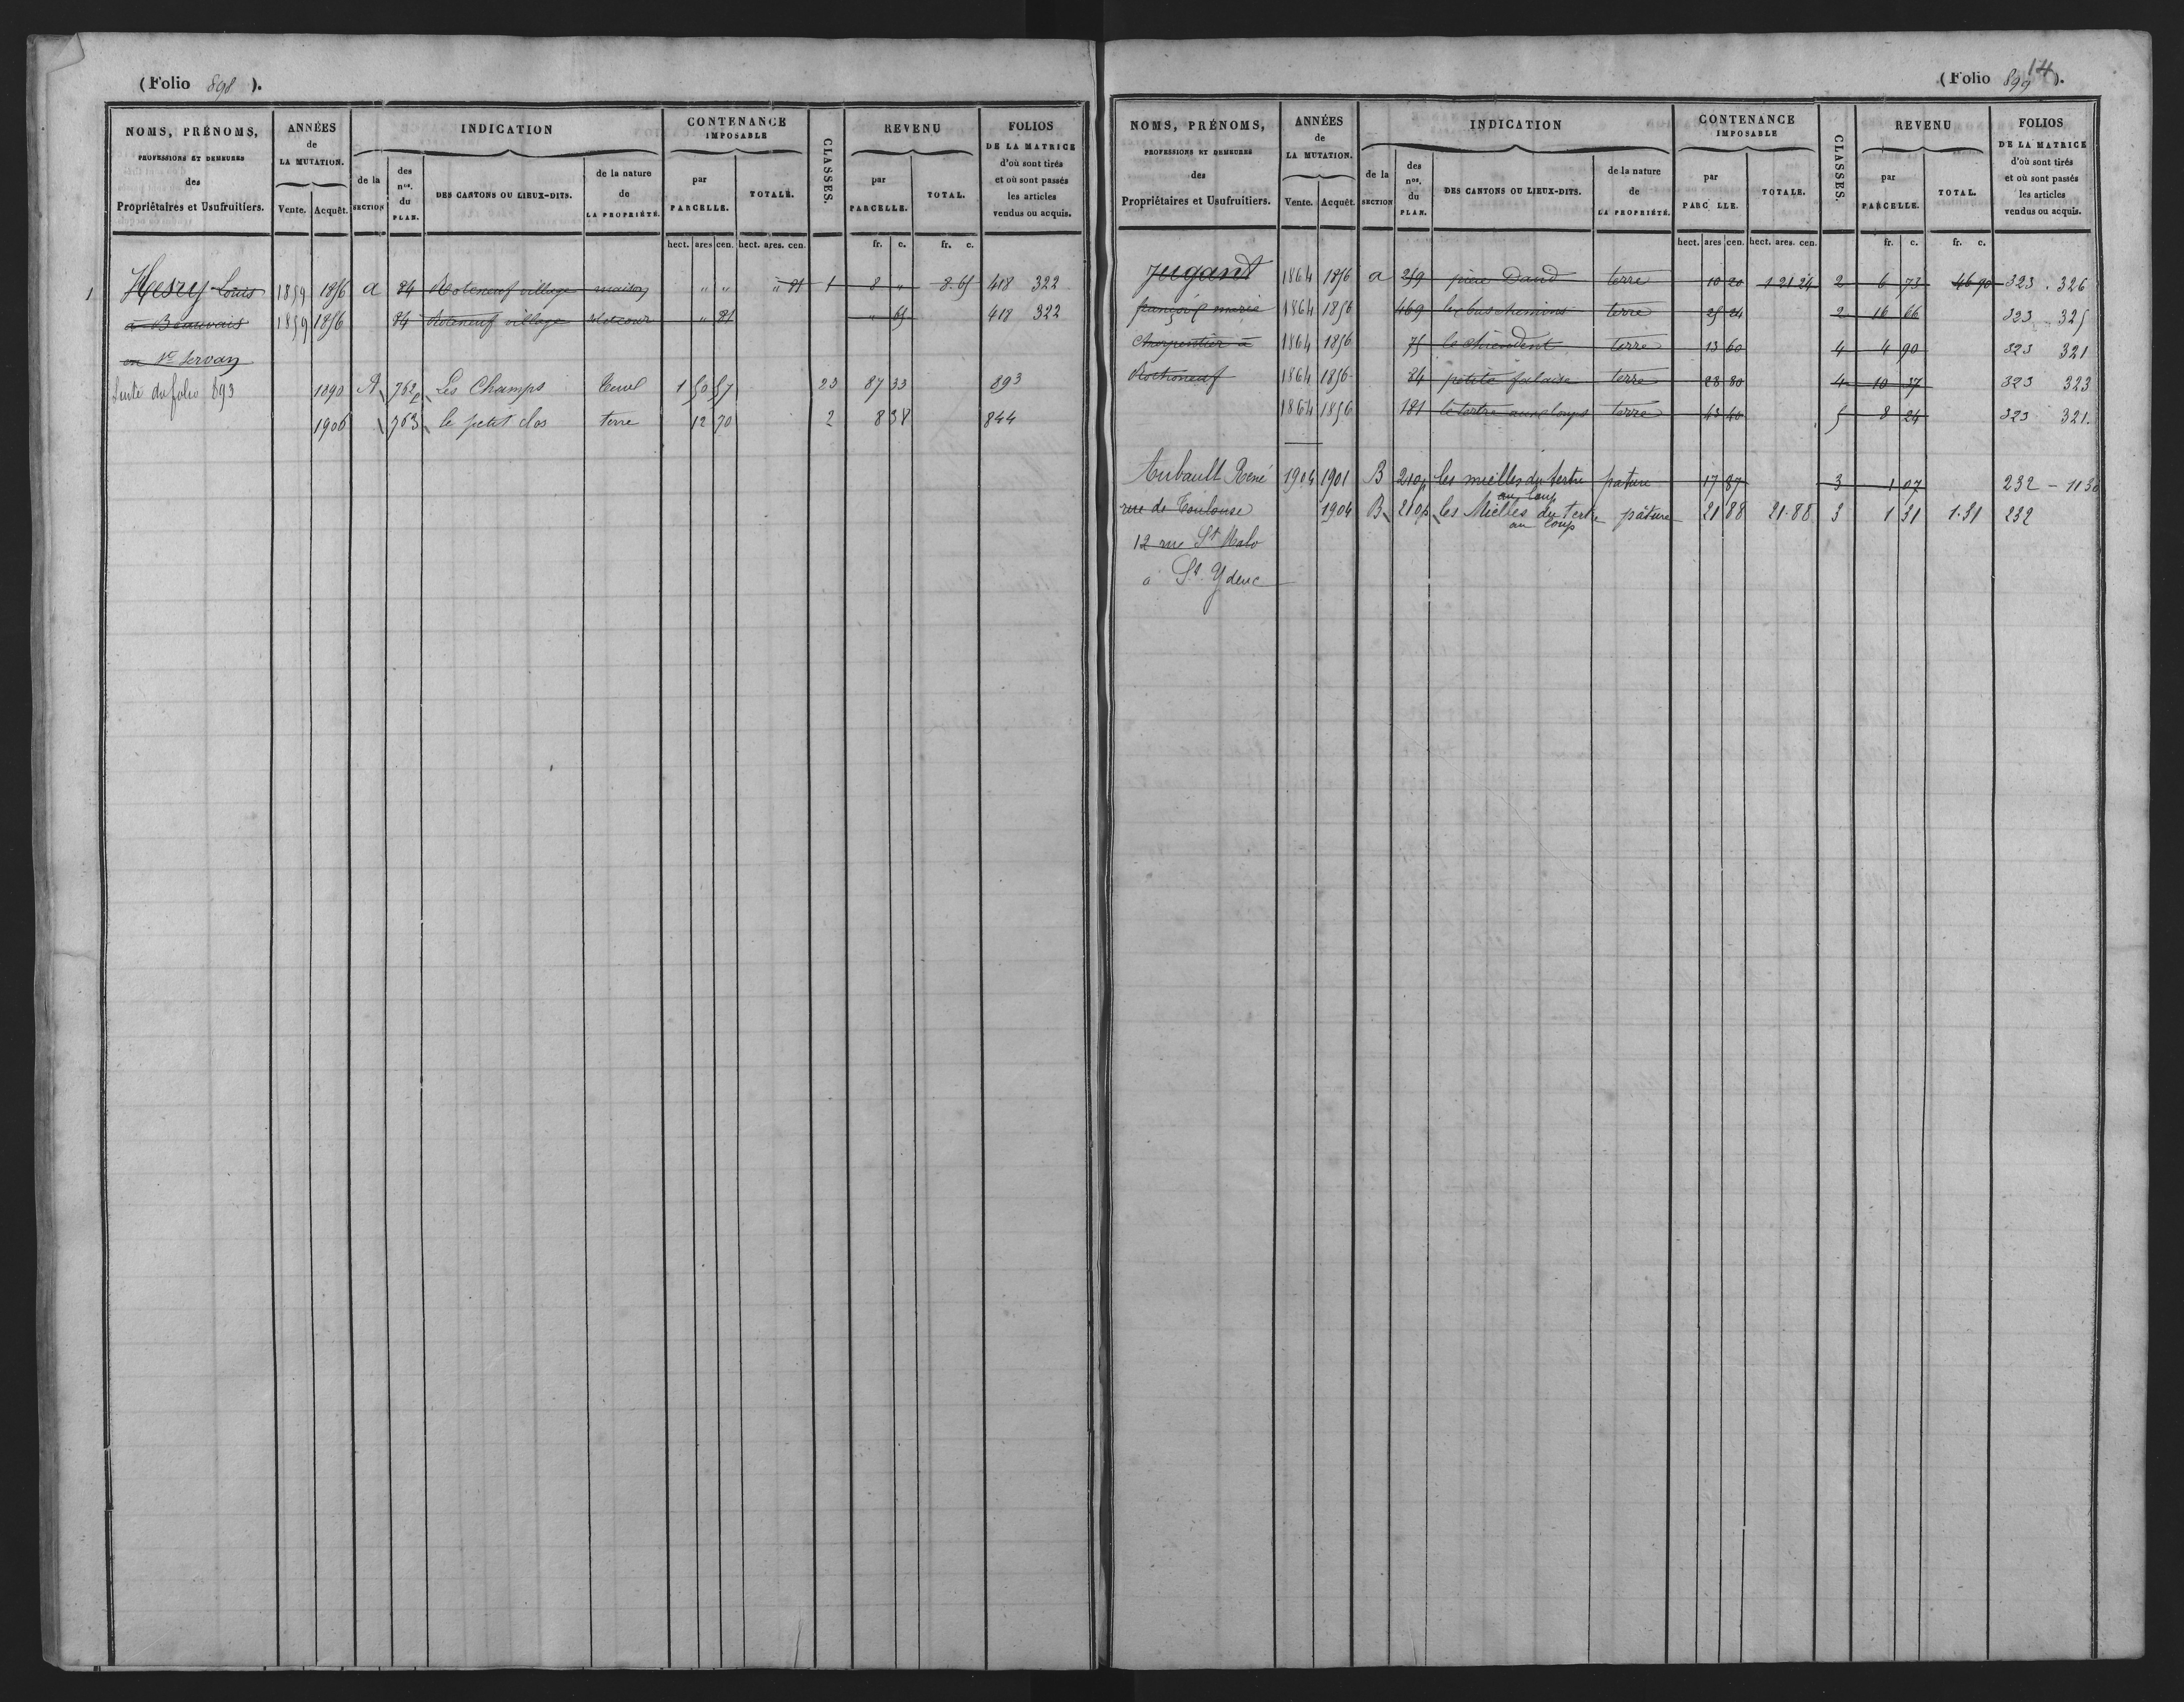 (Folio 898 ).
NOMS, PRÉNOMS,
PROFESSIONS ET DEMEURES
des
Propriétaires et Usufruitiers.
ANNÉES
de
LA MUTATION.
Vente. Acquêt.
INDICATION
de la
SECTION
des
nos.
du
PLAN.
DES CANTONS OU LIEUX-DITS.
de la nature
de
LA PROPRIÉTÉ.
CONTENANCE
IMPOSABLE
par
PARCELLE.
TOTALE.
CLASSES.
REVENU
par
PARCELLE.
TOTAL.
FOLIOS
DE LA MATRICE
d'où sont tirés
et où sont passés
les articles
vendus ou acquis.
hect. ares cen. hect. ares. cen. fr. c. fr. c.
1 Hesry Louis 1859 1856 a 84 Roteneuf village maison " " " 81 1 8 " 8.65 418 322
à Beauvais 1859 1856 84 Roteneuf village " 81 " 65 418 322
en St Servan
Suite du folio 893 1890 A 762p Les Champs 1 50 57 23 87 33 893
1906 763 le petit clos terre 12 70 2 8 38 844
(Folio 899 ).
14
NOMS, PRÉNOMS,
PROFESSIONS ET DEMEURES
des
Propriétaires et Usufruitiers.
ANNÉES
de
LA MUTATION.
Vente. Acquêt.
INDICATION
de la
SECTION
des
nos.
du
PLAN.
DES CANTONS OU LIEUX-DITS.
de la nature
de
LA PROPRIÉTÉ.
CONTENANCE
IMPOSABLE
par
PARC LLE.
TOTALE.
CLASSES.
REVENU
par
PARCELLE.
TOTAL.
FOLIOS
DE LA MATRICE
d'où sont tirés
et où sont passés
les articles
vendus ou acquis.
hect. ares cen. hect. ares. cen. fr. c. fr. c.
Jugand 1864 1856 a 259 David terre 10 20 1 21 24 2 6 73 46 90 323 . 326
marie 1864 1856 469 les bas chemins terre 25 24 2 16 66 323 325
Charpentier à 1864 1856 75 le chiendent terre 13 60 4 4 90 323 321
Rothoneuf 1864 1856 84 petite falaise terre 28 80 4 10 37 323 323
1864 1856 181 le tertre aux loups terre 43 40 5 8 24 323 321.
Aubault René 1904 1901 B 210p les mielles du tertre pature 17 87 3 1 07 232 - 1130
au loup
rue de Toulouse 1904 B 210p les Mielles du Tertre pâture 21 88 21.88 3 1 31 1.31 232
au loup
12 rue St Malo
à St. Ydeuc